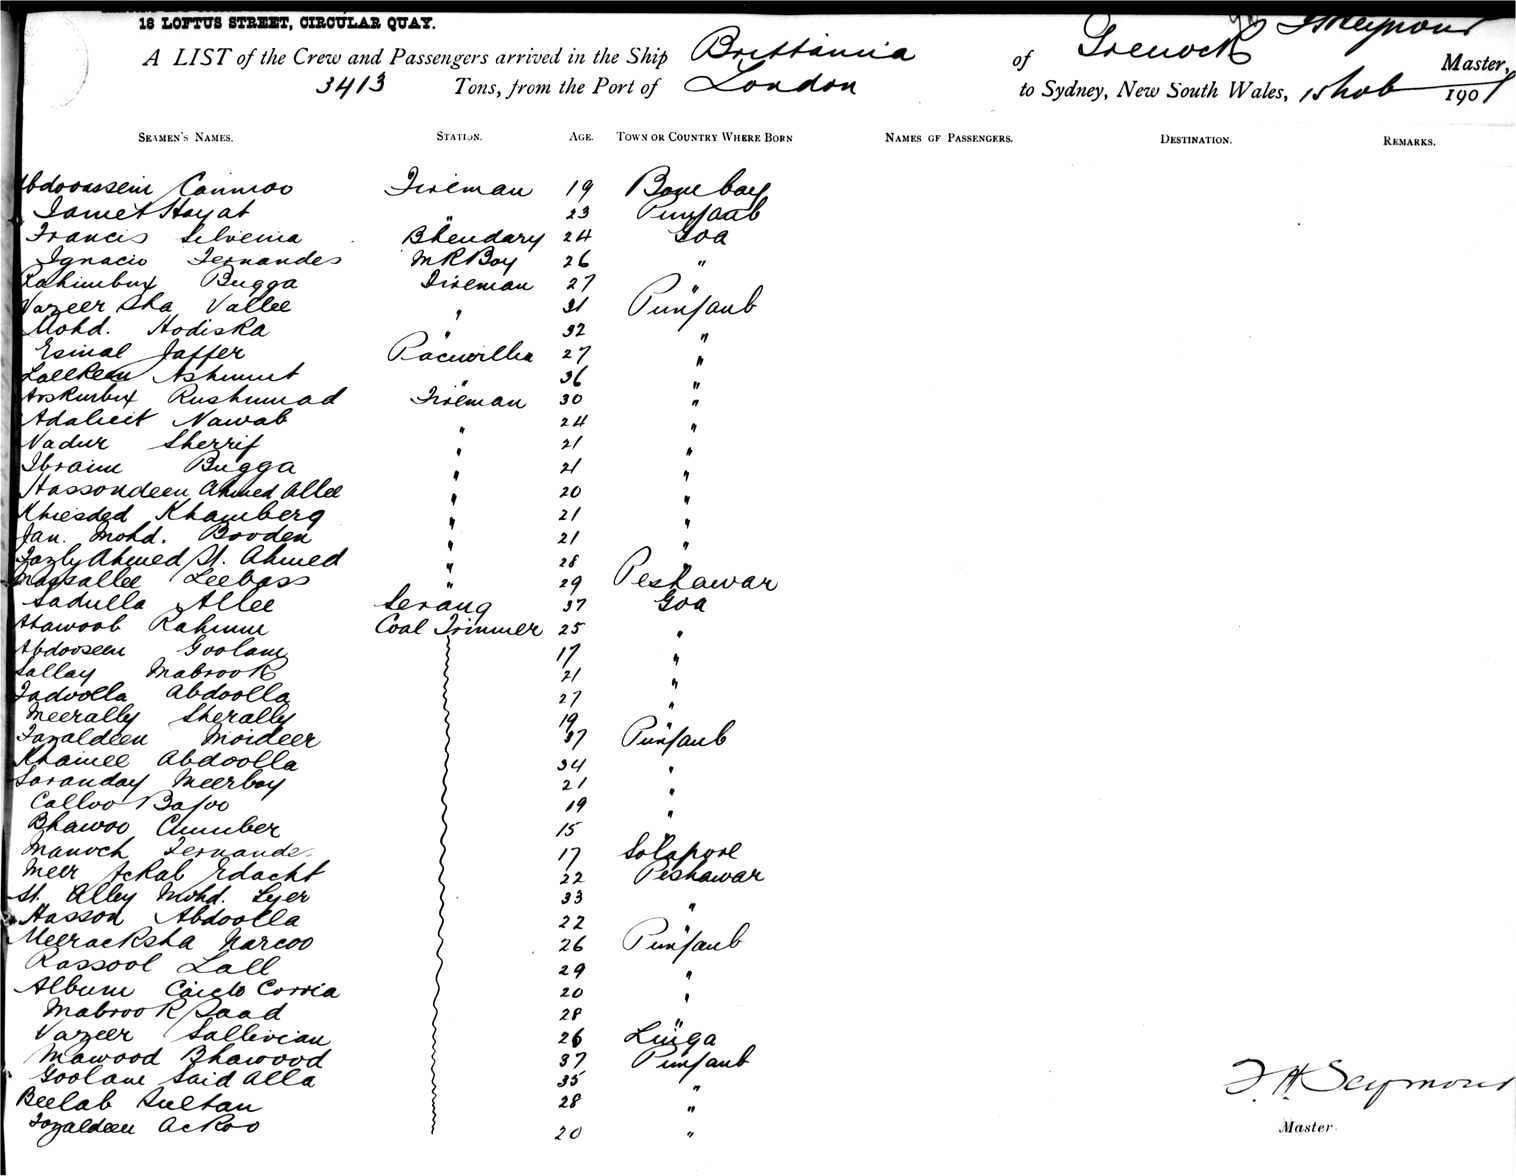 18 LOFTUS STREET, CIRCULAR QUAY.
A LIST of the Crew and Passengers arrived in the Ship Brittannia of Greenock Seymour Master,
3413 Tons, from the Port of London to Sydney, New South Wales, 15 Nov 1901
SEAMEN'S NAMES. STATION. AGE. TOWN OR COUNTRY WHERE BORN NAMES OF PASSENGERS. DESTINATION. REMARKS.
Fireman 19 Bombay
Hayat " 23 Punjaub
Francis Silveina Bhendary 24 Goa
Ignacio Fernandes 26 "
Rahimbux Bugga Fireman 27 "
Vazeer Sha Vallee " 31 Punjaub
Mohd. Hodiska " 32 "
Esmal Jaffer 27 "
" 36 "
Fireman 30 "
Nawab " 24 "
Nadur Sherrif " 21 "
Ibraim Bugga " 21 "
Hassondeen Ahmed Allee " 20 "
Khamberg " 21 "
Jan. Mohd. Booden " 21 "
Fazly Ahmed St. Ahmed " 28 "
" 29 Peshawar
Sadulla Allee Serang 37 Goa
Rahim Coal Trimmer 25 "
Abdooseen Goolam 17 "
Sallay Mabrook 21 "
Abdoolla 27 "
Meerally Sherally 19 "
Fazaldeen Moideer 37 Punjaub
Abdoolla 34 "
Saranday Meerboy 21 "
Calloo Bajoo 19 "
Bhawoo Cumber 15 "
Manoch Fernande 17 Solapore
Meer 22 Peshawar
St. Alley Mohd. 33 "
Hasson Abdoolla 22 "
Meeracksha Narcoo 26 Punjaub
Rassool Lall 29 "
Correia 20 "
Mabrook Saad 28 "
Vazeer Sallivian 26 Linga
Mawood Bhawood 37 Punjaub
Goolam Said Alla 35 "
Beelab Sultan 28 "
Fazaldeen Ackoo 20 "
F. H. Seymour
Master.